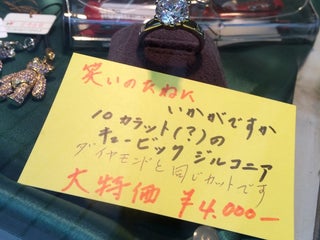 笑いのたねに
いかがですか
10カラット(?)の
キュービック ジルコニア
ダイヤモンドと同じカットです
大特価 ¥4,000-